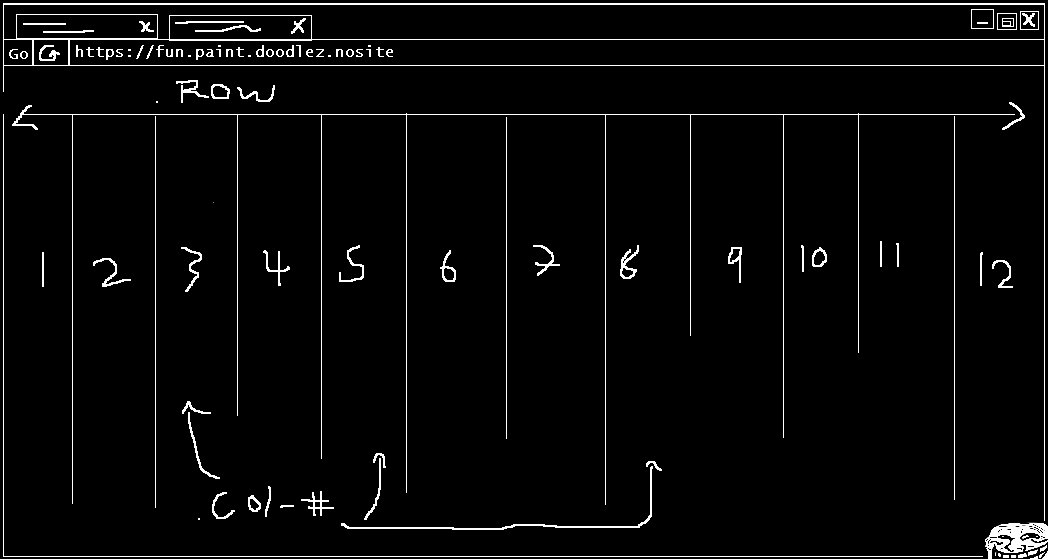 X X
Go https://fun.paint.doodlez.nosite
.ROW
1 2 3 4 5 6 7 8 9 10 11 12
.COl-#